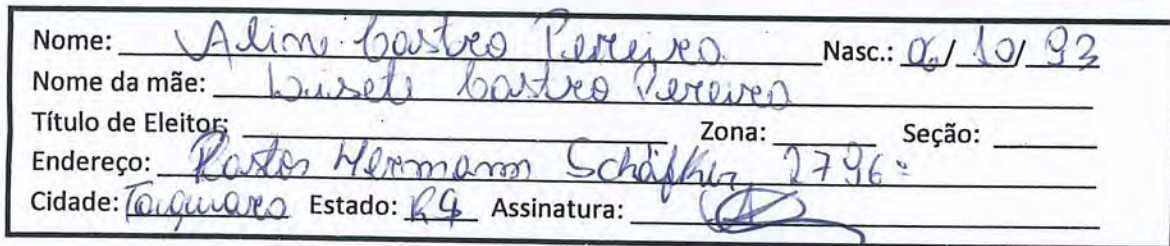 Nome: Aline Castro Pereira Nasc.: /10/93
Nome da mãe: Lisete Castro Pereira
Título de Eleitor: Zona: Seção:
Endereço: Pastor Hermann 2796
Cidade: Taquara Estado: RS Assinatura: